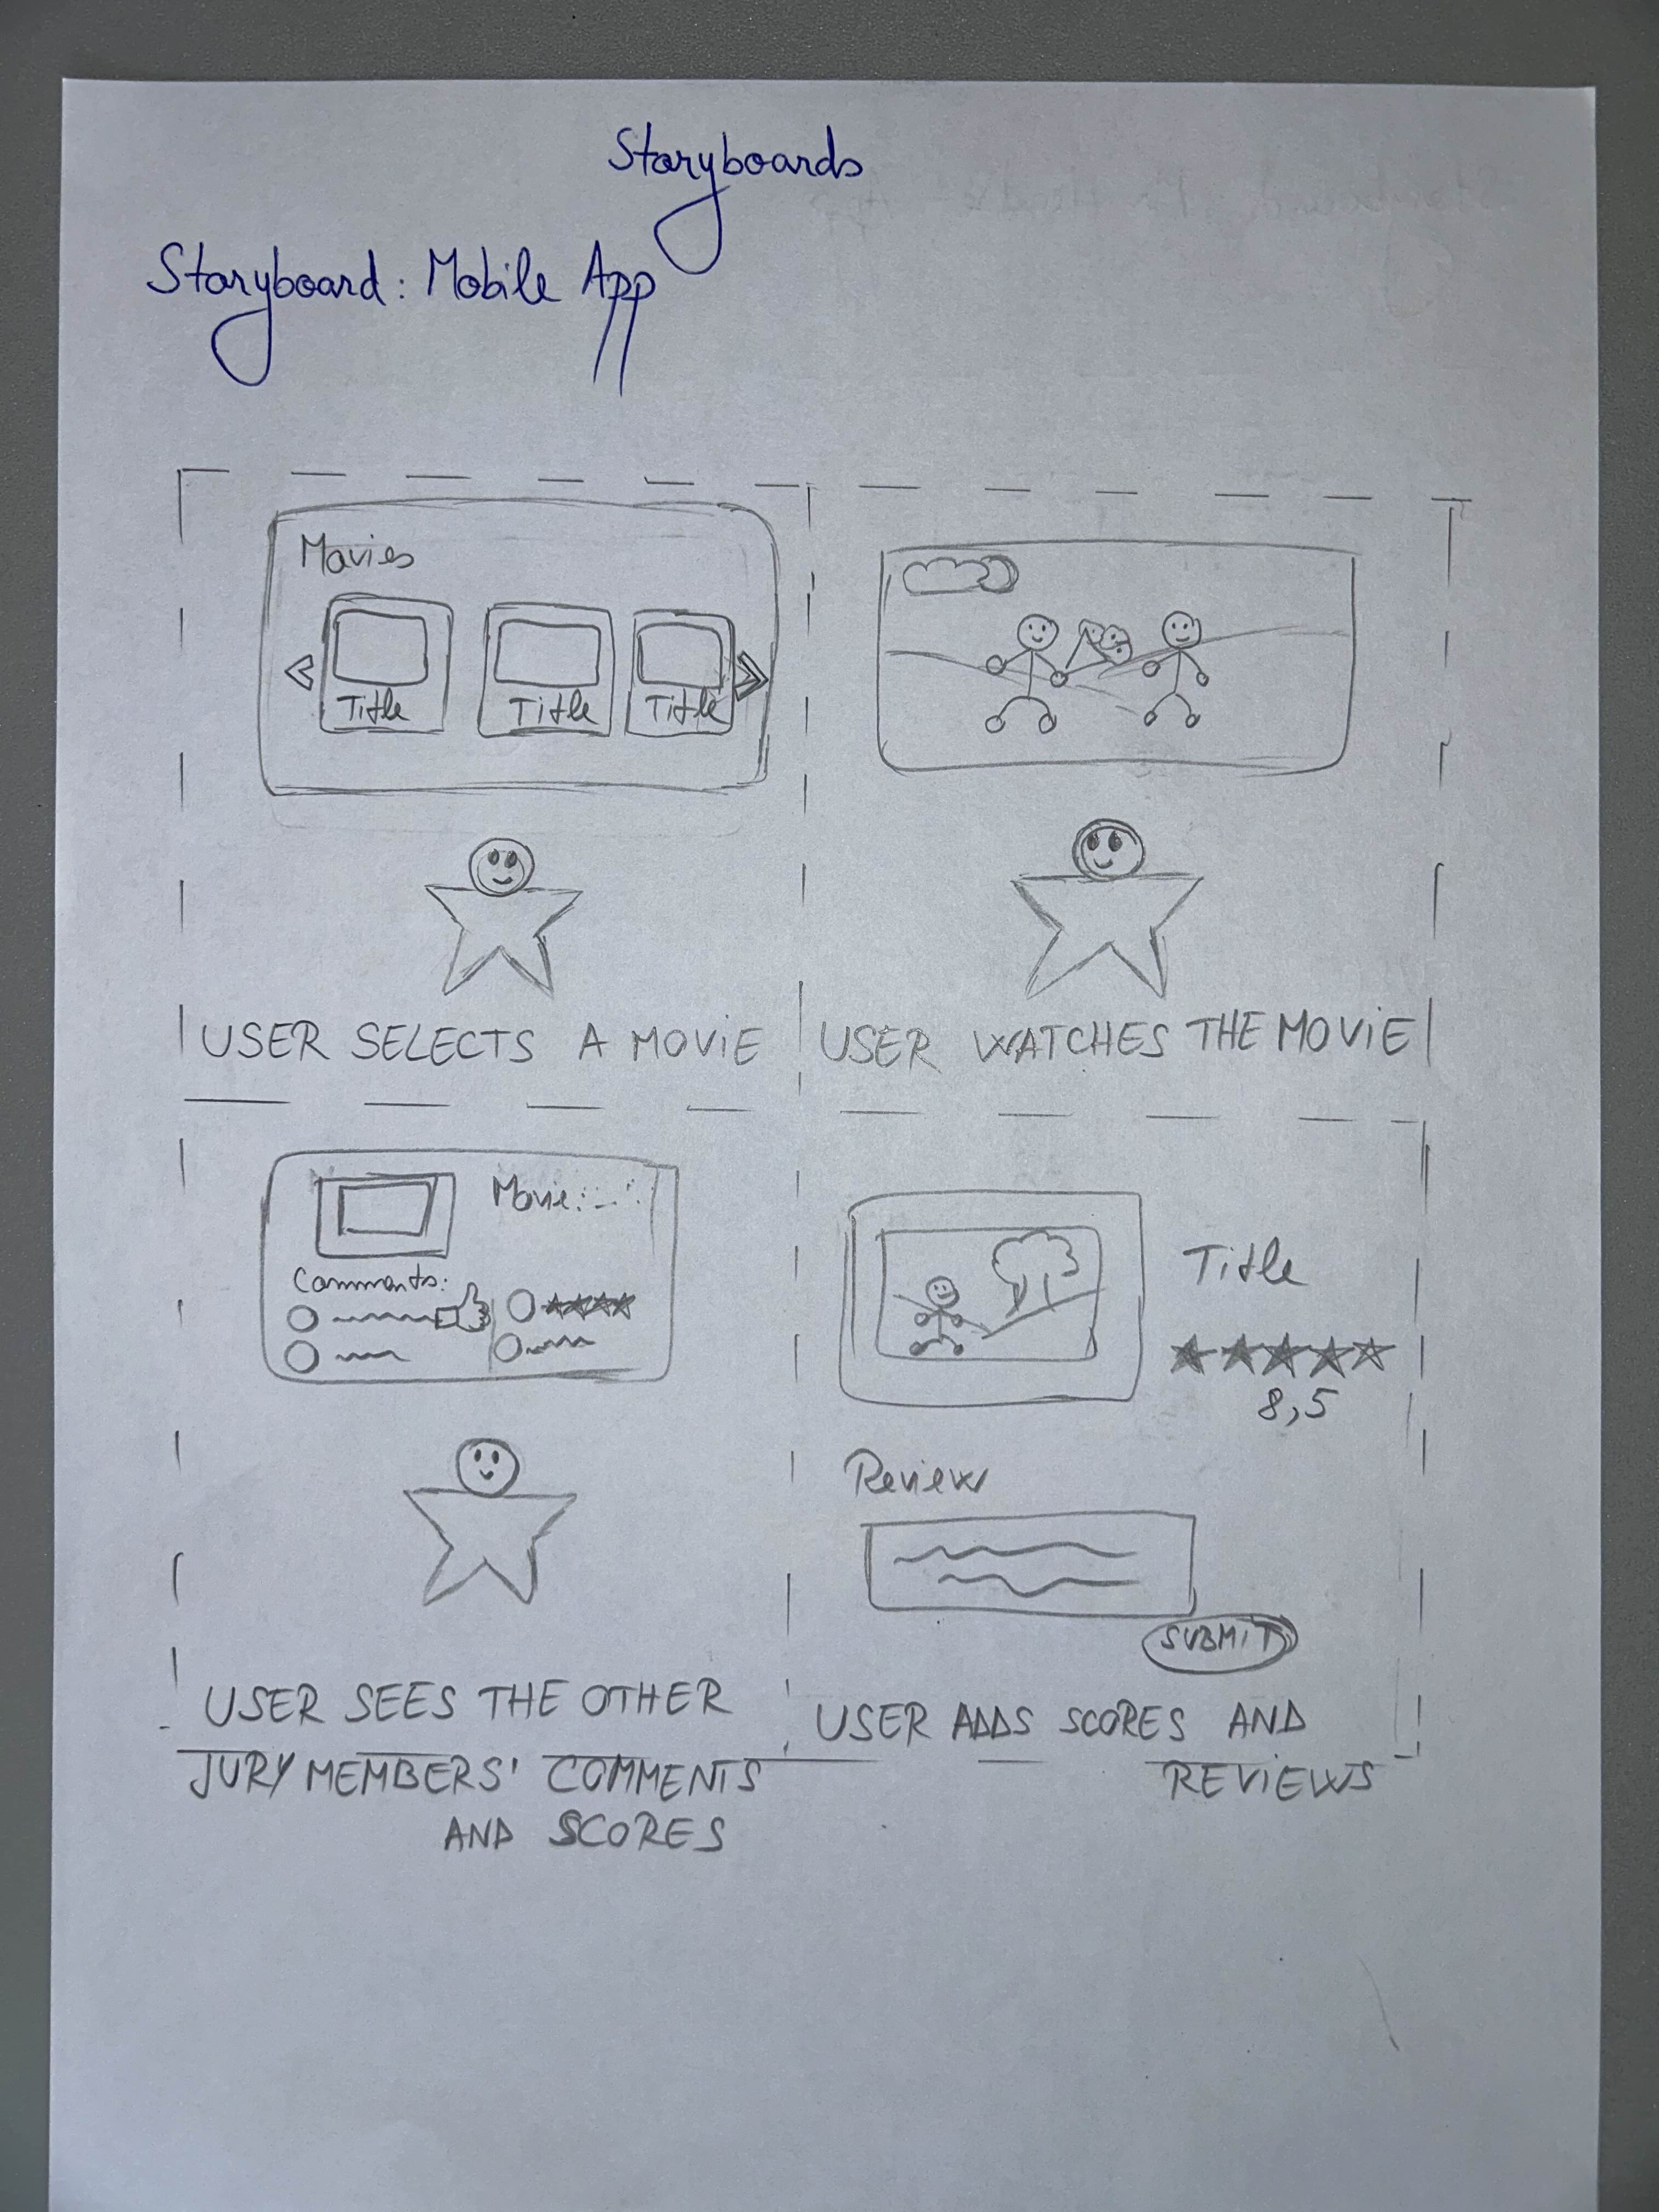 Storyboards
Storyboard: Mobile App
Movies
< Title Title Title >
USER SELECTS A MOVIE
USER WATCHES THE MOVIE
Movie:
Comments:
USER SEES THE OTHER
JURY MEMBERS' COMMENTS
AND SCORES
Title
8,5
Review
SUBMIT
USER ADDS SCORES AND
REVIEWS